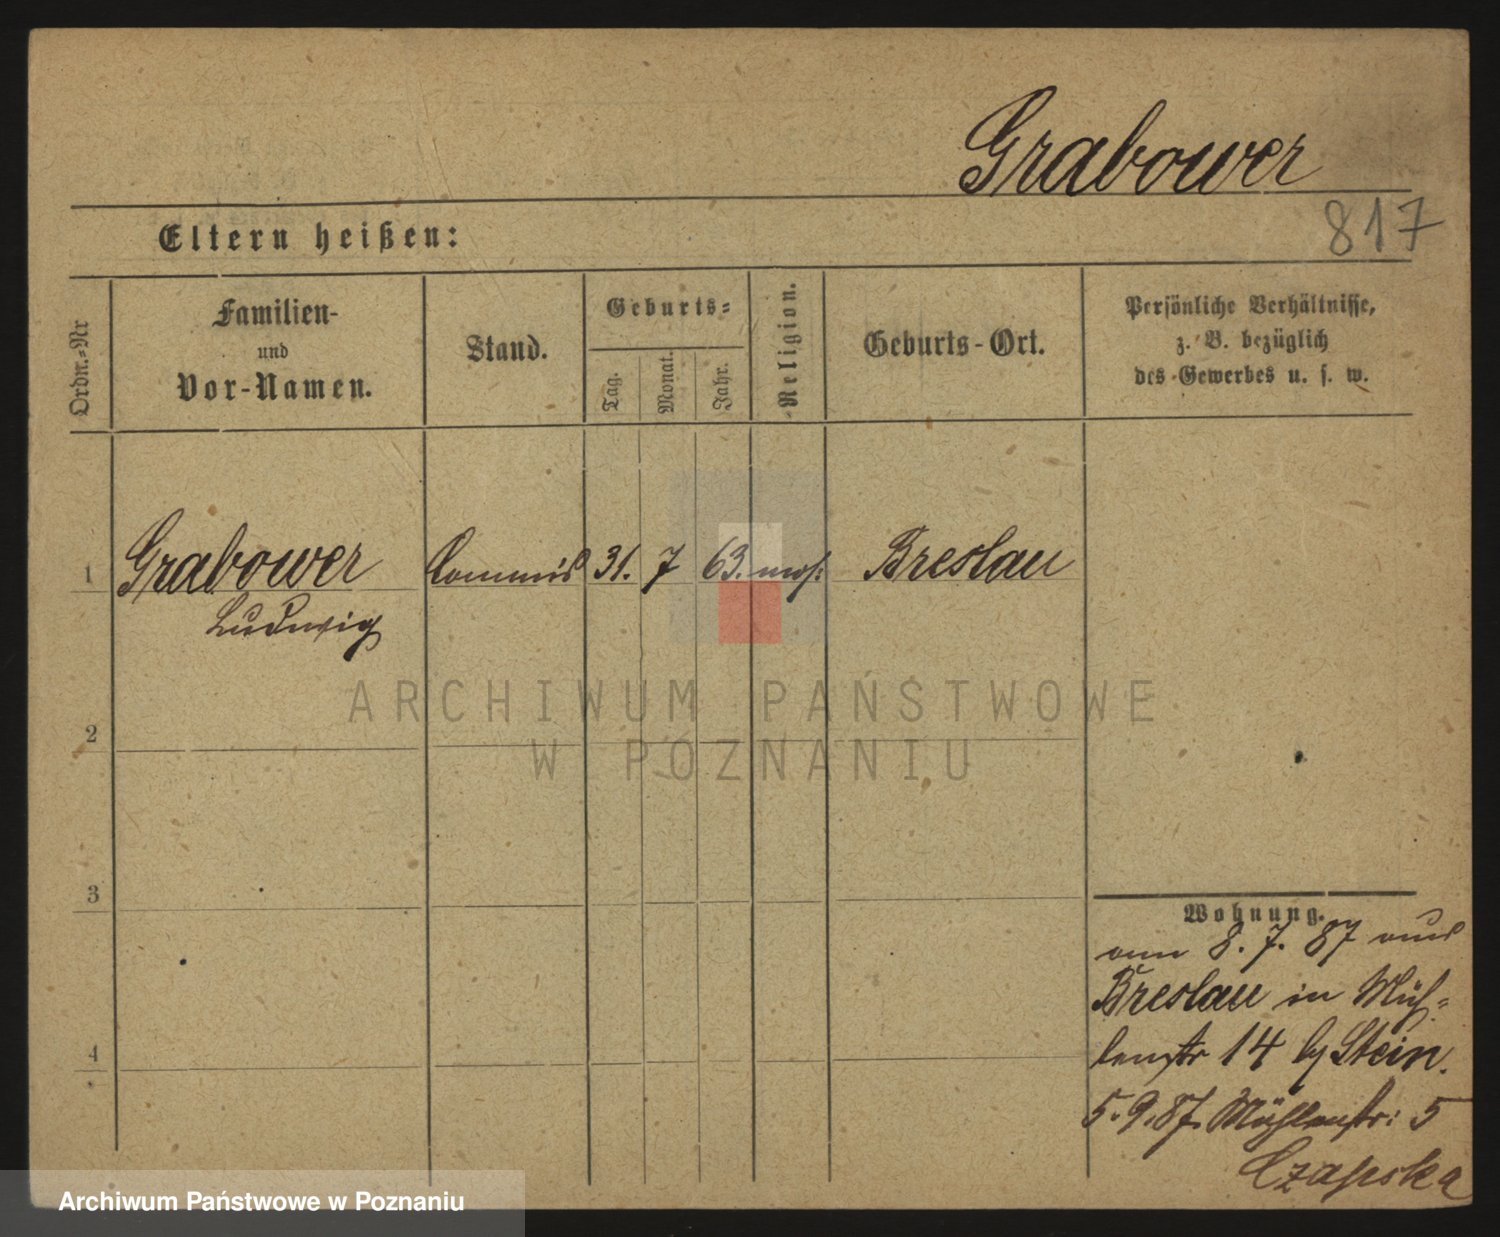 Grabower
817
Eltern heißen:
Ordn.-Nr
Familien-
und
Vor-Namen.
Stand.
Geburts-
Tag.
Monat.
Jahr.
Religion.
Geburts-Ort.
Persönliche Verhältnisse,
z. B. bezüglich
des Gewerbes u. s. w.
1 Grabower Commis 31. 7 63. mos: Breslau
Ludwig
ARCHIWUM PAŃSTWOWE
W POZNANIU
2
3
4
Wohnung.
am 8. 7. 87 aus
Breslau in Müh-
lenstr 14 by Stein.
5. 9. 87. Mühlenstr: 5
Czapska
Archiwum Państwowe w Poznaniu